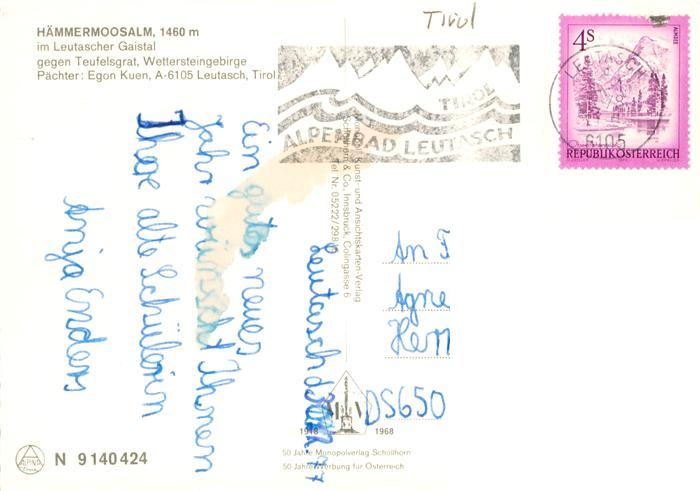 Tirol
HÄMMERMOOSALM, 1460 m
im Leutascher Gaistal
gegen Teufelsgrat, Wettersteingebirge
Pächter: Egon Kuen, A-6105 Leutasch, Tirol
TIROL
ALPENBAD LEUTASCH
4S
ALMSEE
REPUBLIK ÖSTERREICH
LEUTASCH
6105
Kunst- und Ansichtskarten-Verlag
Schöllhorn & Co. Innsbruck, Colingasse 6
Tel. Nr. 05222/
Leutasch
Ein gutes neues
Jahr wünscht Ihnen
Ihre alte Schülerin
Anja Enders
An F
Agne
Herr
DS650
1918 1968
50 Jahre Monopolverlag Schöllhorn
50 Jahre Werbung für Österreich
ALPINA
N 9140424